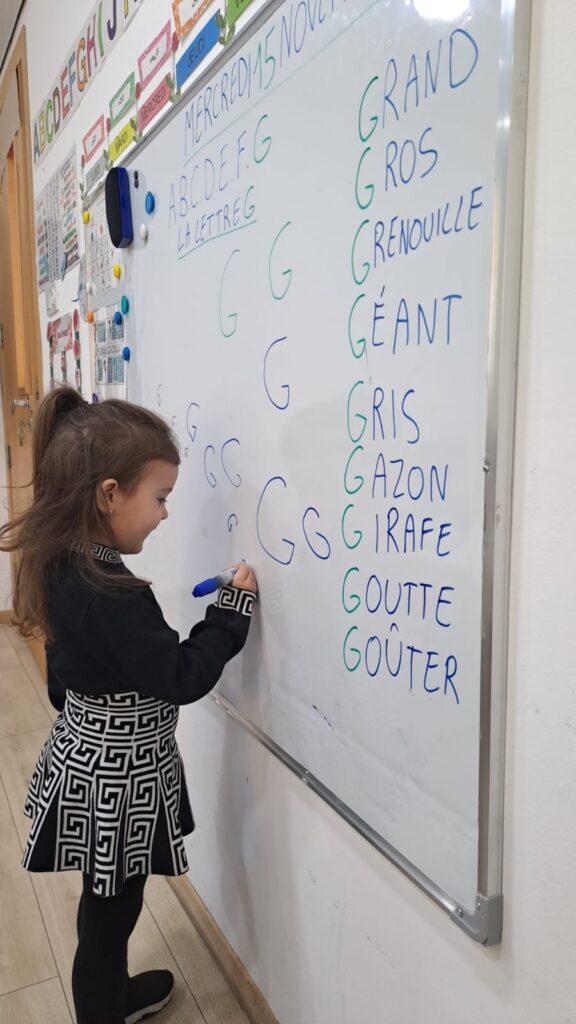 ABCDEFGHIJ
MARDI
MERCREDI
JEUDI
MERCREDI 15 NOVEM
A B C D E. F. G
LA LETTRE G
G G
G
G
G G
G G G
GRAND
GROS
GRENOUILLE
GÉANT
GRIS
GAZON
GIRAFE
GOUTTE
GOÛTER